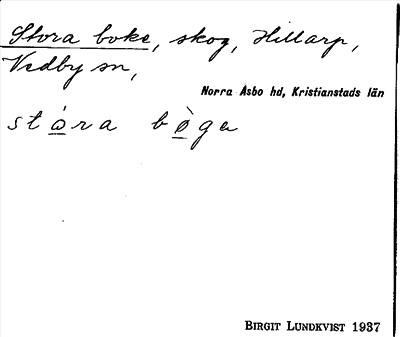 Stora boke, skog, Hillarp,
Vedby sn,
Norra Åsbo hd, Kristianstads län
stòra bø̀ga
BIRGIT LUNDKVIST 1937